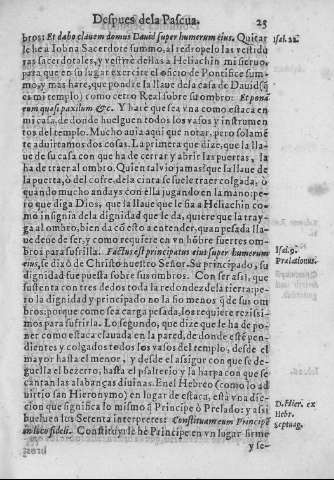 Despues dela Pascua. 25
bros: Et dabo clauem domus Dauid super humerum eius. Quitar Isai. 22.
le he a Iobna Sacerdote summo, al redropelo las vestidu
ras sacerdotales, y vestire dellas a Heliachin mi sieruo,
para que en su lugar exercite el oficio de Pontifice sum-
mo, y mas hare, que pondre la llaue dela casa de Dauid (q̃
es mi templo) como cetro Real sobre su ombro: Et ponã
eum quasi paxillum &c. Y hare que sea vna como estaca en
mi casa, de donde huelguen todos los vasos y instrumen
tos del templo. Mucho auia aqui que notar, pero solamẽ
te aduirtamos dos cosas. La primera que dize, que la lla-
ue de su casa con que ha de cerrar y abrir las puertas, la
ha de traer al ombro. Quien tal vio jamas? que la llaue de
la puerta, ò del cofre, dela cinta se suele traer colgada, ò
quando mucho anda ys con ella jugando en la mano: pe-
ro que diga Dios, que la llaue que le da a Heliachin co-
mo insignia dela dignidad que le da, quiere que la tray-
ga al ombro, bien da cõ esto a entender, quan pesada lla-
ue deue de ser, y como requiere en vn hõbre fuertes om-
bros para sufrilla. Factus est principatus eius super humerum Isai. 9.
eius, se dixo de Christo nuestro Señor. Su principado, su Prelationis.
dignidad fue puesta sobre sus ombros. Con ser assi, que
sustenta con tres dedos toda la redondez dela tierra: pe-
ro la dignidad y principado no la fio menos q̃ de sus om
bros: porque como sea carga pesada, los requiere rezissi-
mos para sufrirla. Lo segundo, que dize que le ha de po-
ner como estaca clauada en la pared, de donde estẽ pen-
dientes y colgados todos los vasos del templo, desde el
mayor hasta el menor, y desde el assigur con que se de-
guella el bezerro, hasta el psalterio y la harpa con que se
cantan las alabanças diuinas. En el Hebreo (como lo ad
uirtio san Hieronymo) en lugar de estaca, està vna dic- D. Hier. ex
cion que significa lo mismo q̃ Principe ò Prelado: y asi Hebr.
bueluen los Setenta interpretes: Constituam eum Principẽ Septuag.
in loco fideli. Constituyrle he Principe en vn lugar firme
y se-